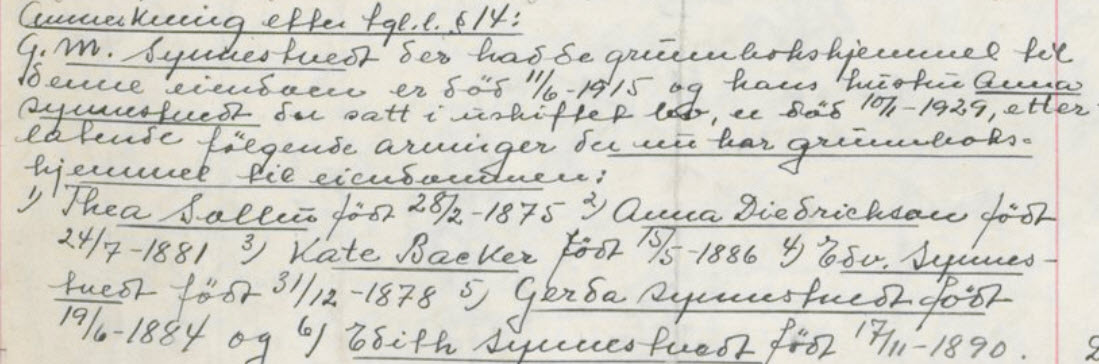 Anmerkning efter tgl.l. § 14:
G. M. Synnestvedt der hadde grunnbokshjemmel til
denne eiendom er död 11/6-1915 og hans hustru Anna
Synnestvedt der satt i uskiftet bo, er död 10/1-1929, efter-
latende følgende arvinger der nu har grunnboks-
hjemmel til eiendommen:
1) Thea Sollin födt 28/2-1875 2) Anna Diedrichson födt
24/7-1881 3) Kate Backer födt 15/5-1886 4) Edv. Synnes-
tvedt födt 31/12-1878 5) Gerda Synnestvedt födt
19/6-1884 og 6) Edith Synnestvedt födt 17/11-1890.